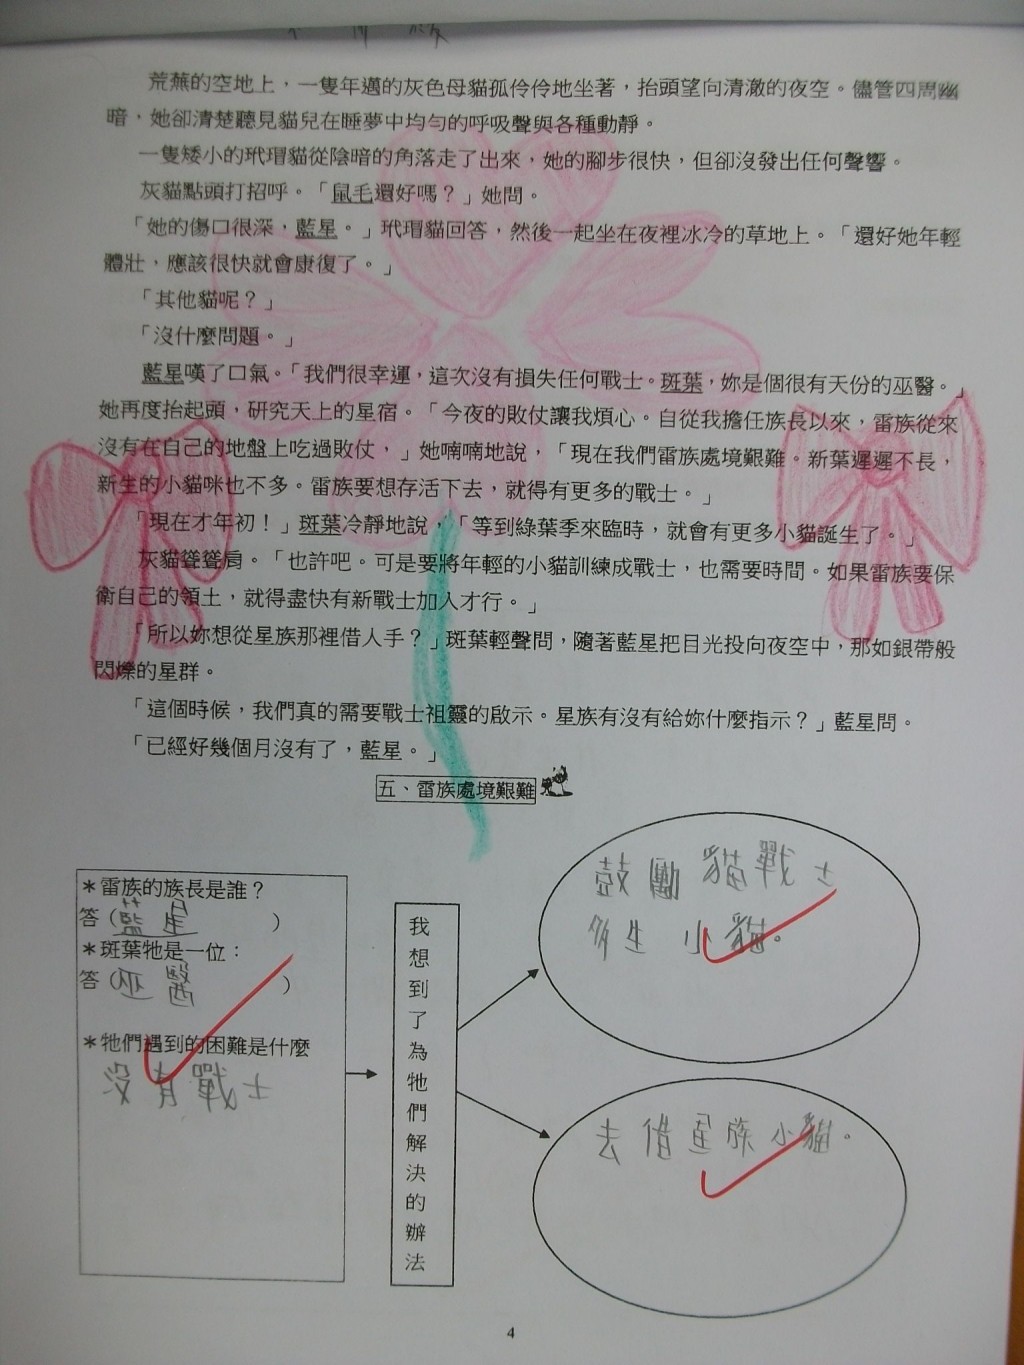 荒蕪的空地上，一隻年邁的灰色母貓孤伶伶地坐著，抬頭望向清澈的夜空。儘管四周幽
暗，她卻清楚聽見貓兒在睡夢中均勻的呼吸聲與各種動靜。
一隻矮小的玳瑁貓從陰暗的角落走了出來，她的腳步很快，但卻沒發出任何聲響。
灰貓點頭打招呼。「鼠毛還好嗎？」她問。
「她的傷口很深，藍星。」玳瑁貓回答，然後一起坐在夜裡冰冷的草地上。「還好她年輕
體壯，應該很快就會康復了。」
「其他貓呢？」
「沒什麼問題。」
藍星嘆了口氣。「我們很幸運，這次沒有損失任何戰士。斑葉，妳是個很有天份的巫醫。」
她再度抬起頭，研究天上的星宿。「今夜的敗仗讓我煩心。自從我擔任族長以來，雷族從來
沒有在自己的地盤上吃過敗仗，」她喃喃地說，「現在我們雷族處境艱難。新葉遲遲不長，
新生的小貓咪也不多。雷族要想存活下去，就得有更多的戰士。」
「現在才年初！」斑葉冷靜地說，「等到綠葉季來臨時，就會有更多小貓誕生了。」
灰貓聳聳肩。「也許吧。可是要將年輕的小貓訓練成戰士，也需要時間。如果雷族要保
衛自己的領土，就得盡快有新戰士加入才行。」
「所以妳想從星族那裡借人手？」斑葉輕聲問，隨著藍星把目光投向夜空中，那如銀帶般
閃爍的星群。
「這個時候，我們真的需要戰士祖靈的啟示。星族有沒有給妳什麼指示？」藍星問。
「已經好幾個月沒有了，藍星。」
五、雷族處境艱難
＊雷族的族長是誰？
答（藍星）
＊斑葉牠是一位：
答（巫醫）
＊牠們遇到的困難是什麼
沒有戰士
我想到了為牠們解決的辦法
鼓勵貓戰士
多生小貓。
去借星族小貓。
4